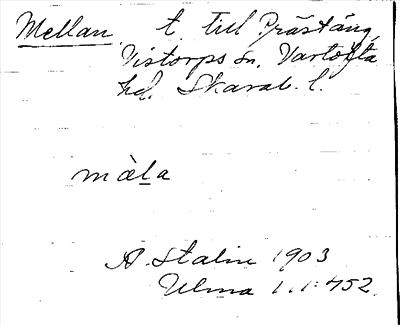 Mellan t. till Prästäng,
Vistorps sn, Vartofta
hd. Skarab. l.
màl̲a
A. Stalin 1903
Ulma 1.1:452.